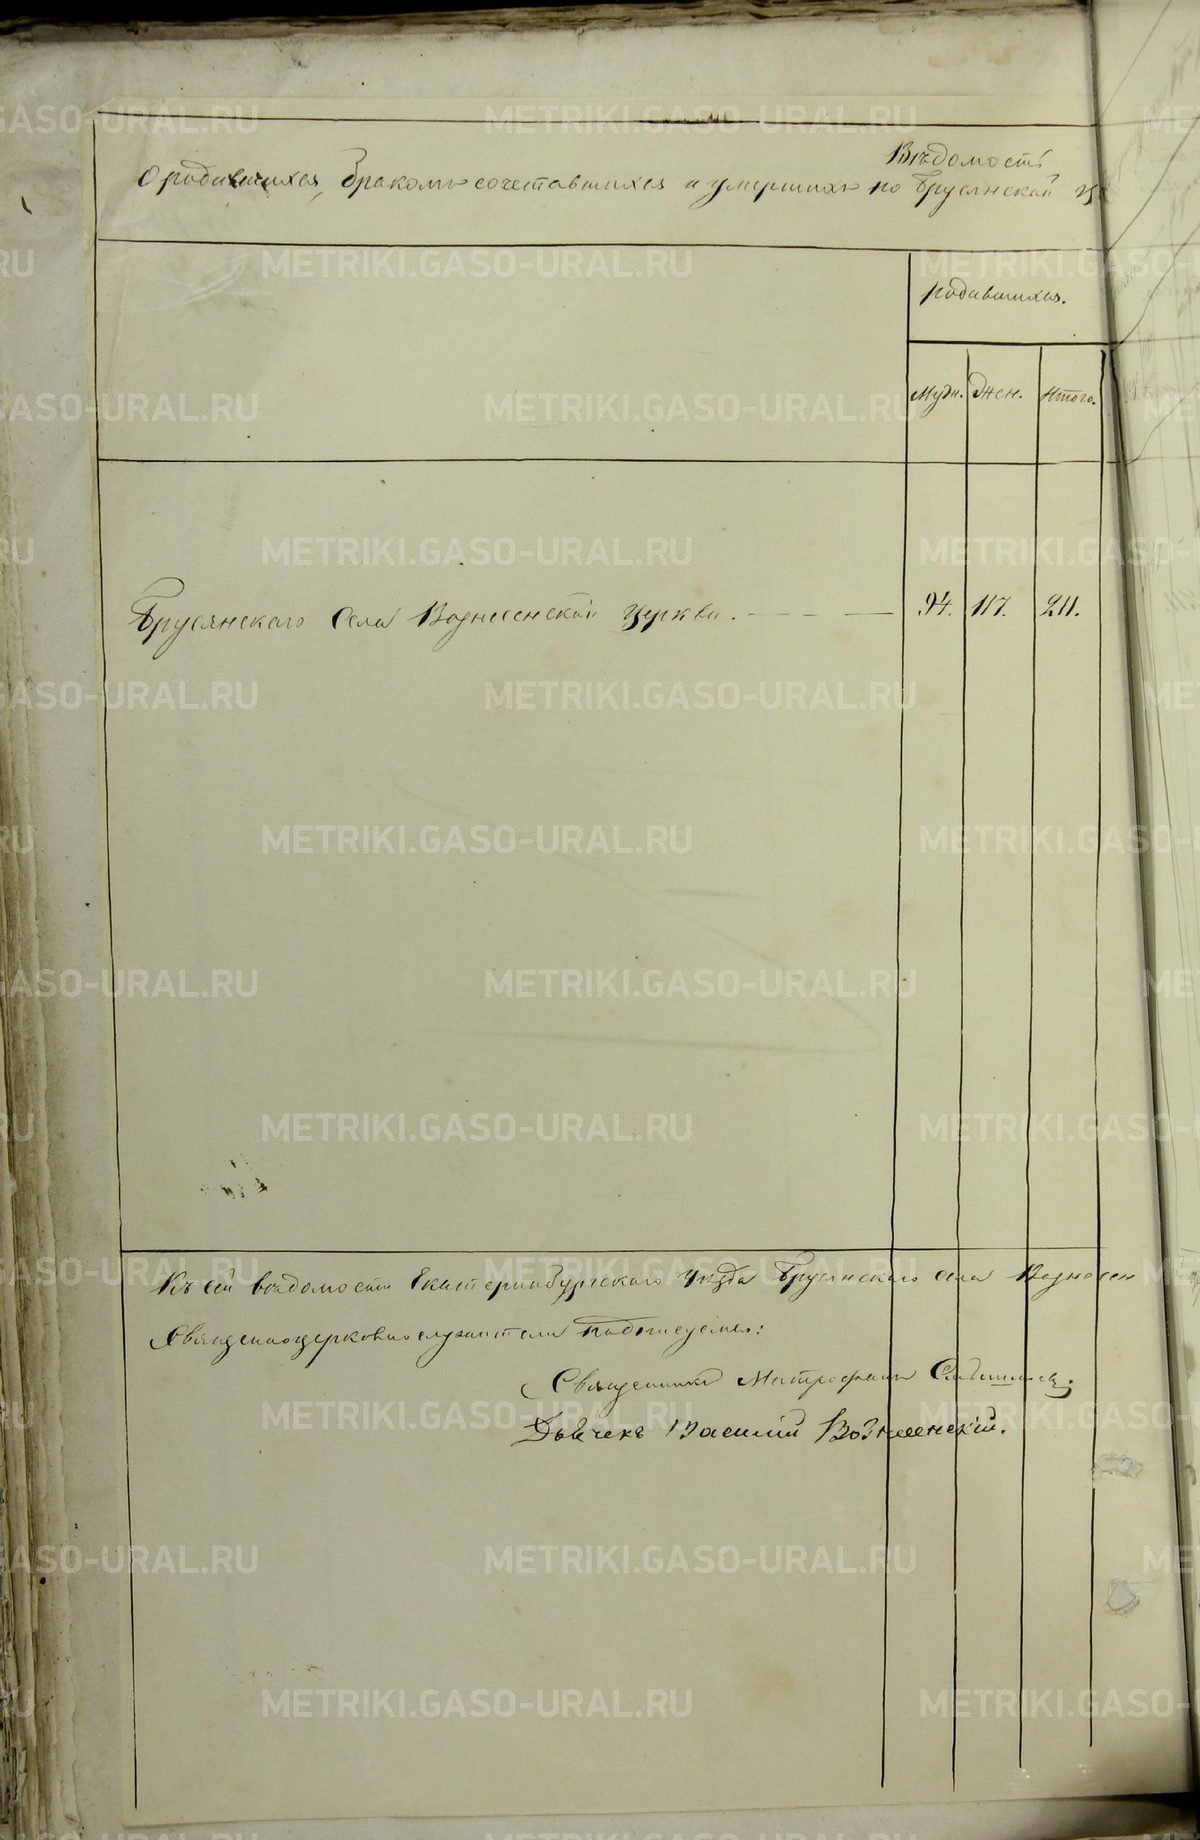 Вѣдомость
О родившихся, бракомъ сочетавшихся и умершихъ по Бруснской
родившихся.
Муж. Жен. Итого.
Бруснскаго Села Вознесенской церкви. 94. 117. 211.
Къ сей вѣдомости Екатеринбургскаго Уѣзда Бруснскаго села Вознесен
Священноцерковнослужители подписуемся:
Священникъ Митрофанъ
Дьячекъ Василій Вознесенскій.
METRIKI.GASO-URAL.RU